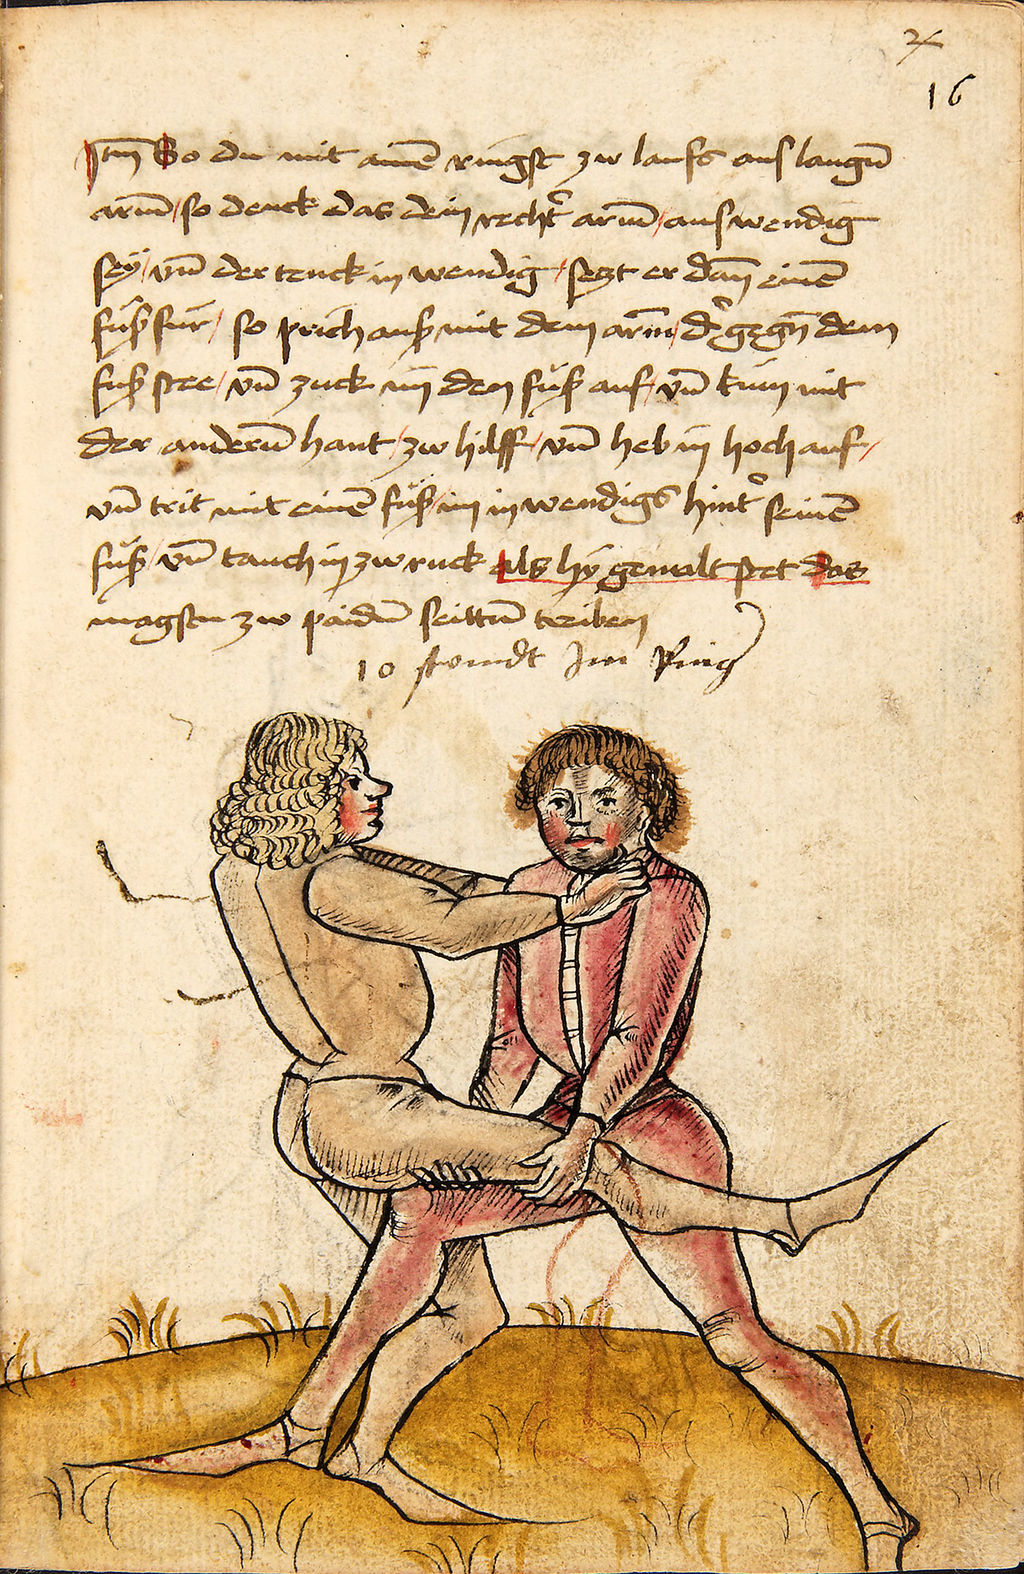 x
16
Itm̄ So du mit ainē ringst zw laufs aus langn̄
arm̄ / so denck das dein recht̉ arm̄ / auswendig
seÿ / vn̄ der tenck inwendig / setzt er dan̄ einē
fuß fur / so prich auß mit dem arm̄ / d̉ gegn̄ dem
fuß stee / vn̄ zuck im den fuß auf / vn̄ kum mit
der andern̄ hant / zw hilff / vn̄ heb in hoch auf /
vn̄ trit mit einē fuß im inwendigs hint̉ seinē
fuß / vn̄ tauch in zw ruck als hÿ gemalt stet das
magstu zw paidn̄ seittn̄ treiben
10 stundt Im Ring